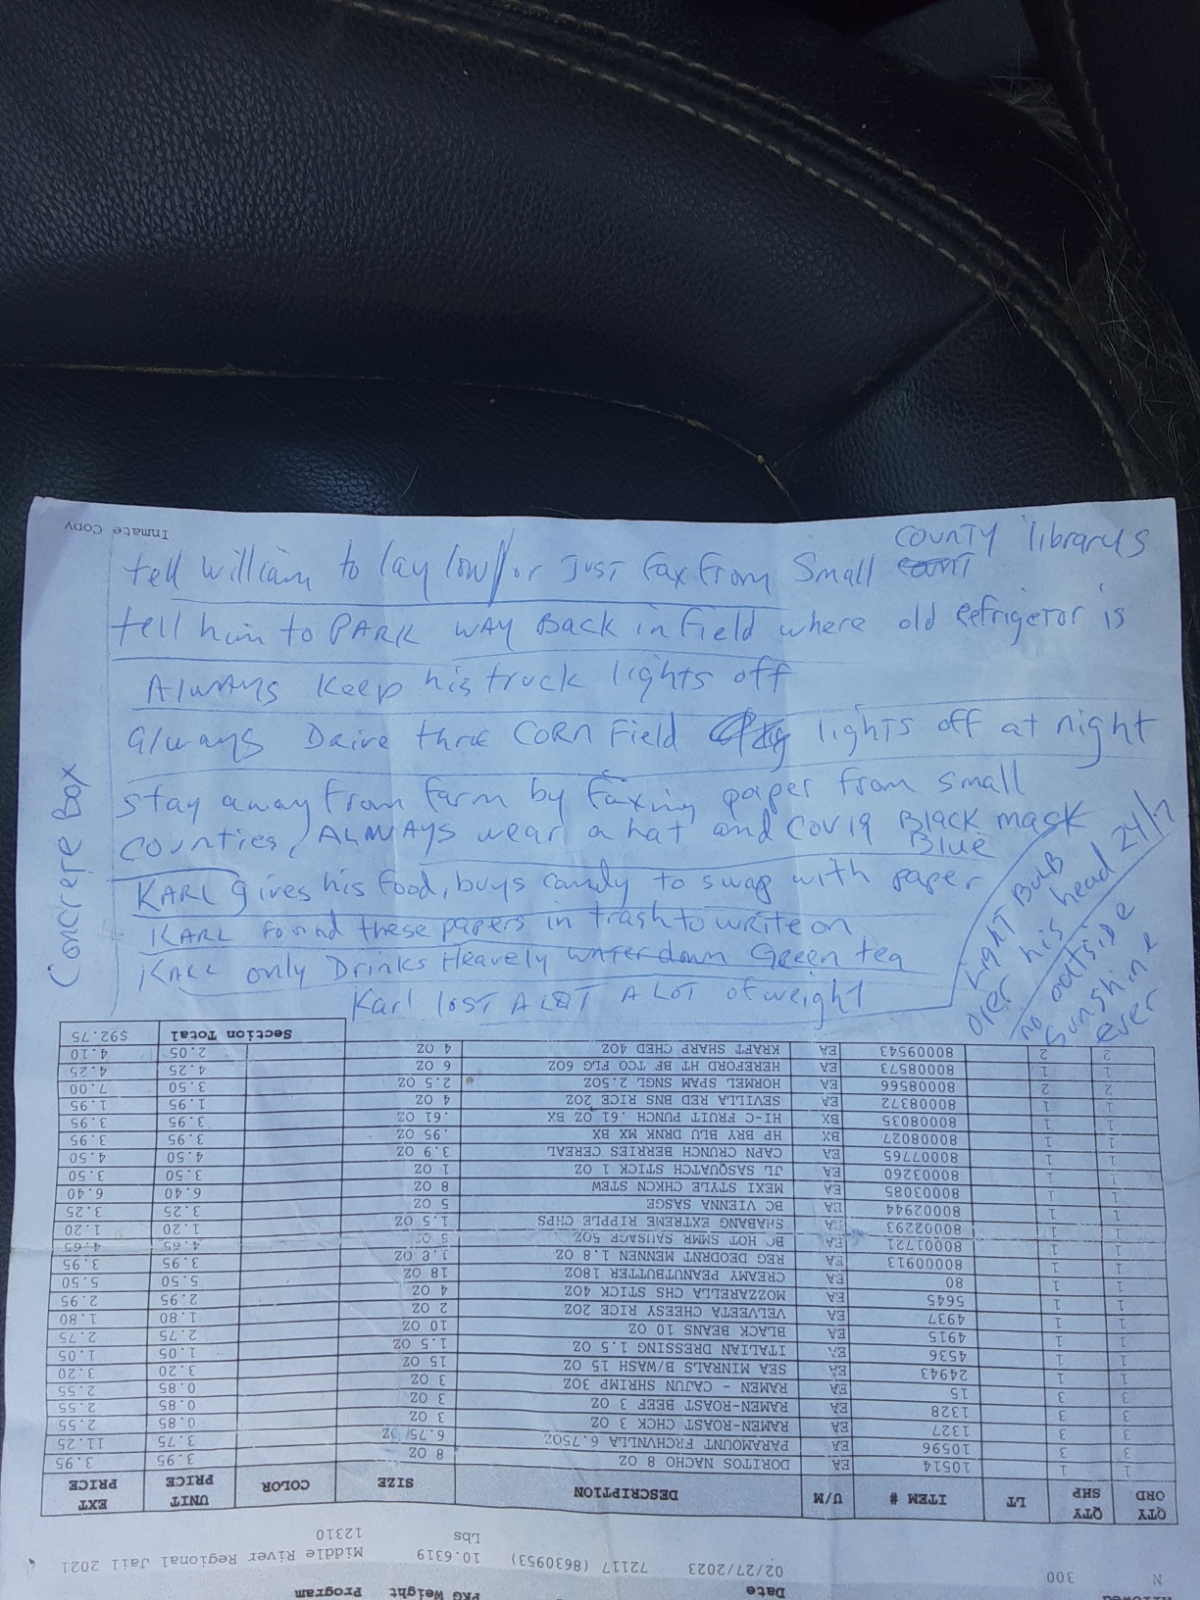 Inmate Copy
COUNTY librarys
tell william to lay low/or JUST Fax From Small
tell him to PARK WAY Back in Field where old Refrigeror is
AlWAYS Keep his truck lights off
always Drive thre CORN Field lights off at night
stay away From farm by faxing paper from small
counties, ALWAYS wear a hat and Cov19 Black mask
Blue
KARL gives his food, buys candy to swap with paper
KARL found these papers in trash to write on
Karl only Drinks Heavely waterdown Green tea
Karl lost A LOT A LOT of weight
Concrete Box
LIGHT BULB
over his head 24/7
no outside
sunshine
ever
N 300
Date PKG Weight Program
02/27/2023 72117 (8630953) 10.6319 Middle River Regional Jail 2021
Lbs 12310
QTY ORD QTY SHP LT ITEM # U/M DESCRIPTION SIZE COLOR UNIT PRICE EXT PRICE
1 1 10514 EA DORITOS NACHO 8 OZ 8 OZ 3.95 3.95
3 3 10596 EA PARAMOUNT FRCHVNLLA 6.75OZ 6.75 OZ 3.75 11.25
3 3 1327 EA RAMEN-ROAST CHCK 3 OZ 3 OZ 0.85 2.55
3 3 1328 EA RAMEN-ROAST BEEF 3 OZ 3 OZ 0.85 2.55
3 3 15 EA RAMEN - CAJUN SHRIMP 3OZ 3 OZ 0.85 2.55
1 1 24943 EA SEA MINRALS B/WASH 15 OZ 15 OZ 3.20 3.20
1 1 4536 EA ITALIAN DRESSING 1.5 OZ 1.5 OZ 1.05 1.05
1 1 4915 EA BLACK BEANS 10 OZ 10 OZ 2.75 2.75
1 1 4937 EA VELVEETA CHEESY RICE 2OZ 2 OZ 1.80 1.80
1 1 5645 EA MOZZARELLA CHS STICK 4OZ 4 OZ 2.95 2.95
1 1 80 EA CREAMY PEANUTBUTTER 18OZ 18 OZ 5.50 5.50
1 1 80000913 EA REG DEORDNT MENNEN 1.8 OZ 1.8 OZ 3.95 3.95
1 1 80001721 EA BC HOT SMMR SAUSAGE 5OZ 5 OZ 4.65 4.65
1 1 80002293 EA SHABANG EXTREME RIPPLE CHPS 1.5 OZ 1.20 1.20
1 1 80002944 EA BC VIENNA SASGE 5 OZ 3.25 3.25
1 1 80003085 EA MEXI STYLE CHKCN STEW 8 OZ 6.40 6.40
1 1 80003260 EA JL SASQUATCH STICK 1 OZ 1 OZ 3.50 3.50
1 1 80007765 EA CAPN CRUNCH BERRIES CEREAL 3.9 OZ 4.50 4.50
1 1 80008027 BX HP BRY BLU DRNK MX BX .95 OZ 3.95 3.95
1 1 80008035 BX HI-C FRUIT PUNCH .61 OZ BX .61 OZ 3.95 3.95
1 1 80008372 EA SEVILLA RED BNS RICE 2OZ 4 OZ 1.95 1.95
2 2 80008566 EA HORMEL SPAM SNGL 2.5OZ 2.5 OZ 3.50 7.00
1 1 80008573 EA HEREFORD HT BF TCO FLG 6OZ 6 OZ 4.25 4.25
2 2 80009543 EA KRAFT SHARP CHED 4OZ 4 OZ 2.05 4.10
Section Total $92.75